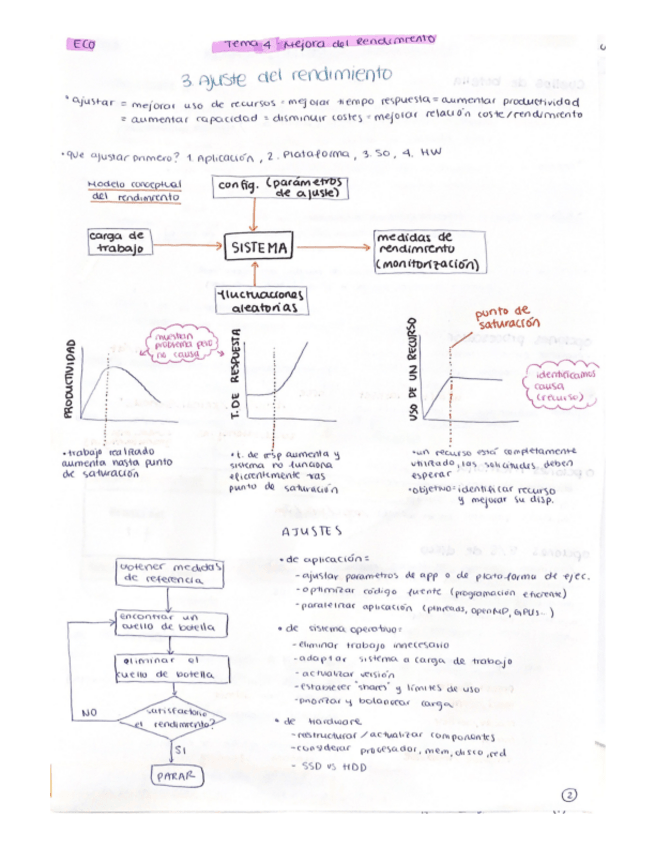 ECO
Tema 4 Mejora del Rendimiento
3. Ajuste del rendimiento
• ajustar = mejorar uso de recursos = mejorar tiempo respuesta = aumentar productividad
= aumentar capacidad = disminuir costes = mejorar relación coste/rendimiento
• que ajustar primero? 1. Aplicación, 2. Plataforma, 3. SO, 4. HW
Modelo conceptual
del rendimiento
config. (parámetros
de ajuste)
carga de
trabajo
SISTEMA
medidas de
rendimiento
(monitorización)
fluctuaciones
aleatorias
PRODUCTIVIDAD
muestran
problema pero
no causa
T. DE RESPUESTA
USO DE UN RECURSO
punto de
saturación
identificamos
causa
(recurso)
• trabajo realizado
aumenta hasta punto
de saturación
• t. de resp aumenta y
sistema no funciona
eficientemente tras
punto de saturación
• un recurso está completamente
utilizado, las solicitudes deben
esperar
• objetivo = identificar recurso
y mejorar su disp.
AJUSTES
obtener medidas
de referencia
encontrar un
cuello de botella
eliminar el
cuello de botella
satisfactorio
el rendimiento?
NO
SI
PARAR
• de aplicación =
- ajustar parametros de app o de plataforma de ejec.
- optimizar código fuente (programación eficiente)
- paralelizar aplicación (pthreads, OpenMP, GPUs...)
• de sistema operativo =
- eliminar trabajo innecesario
- adaptar sistema a carga de trabajo
- actualizar versión
- establecer "shares" y límites de uso
- priorizar y balancear carga
• de hardware
- restructurar / actualizar componentes
- considerar procesador, mem, disco, red
- SSD vs HDD
2